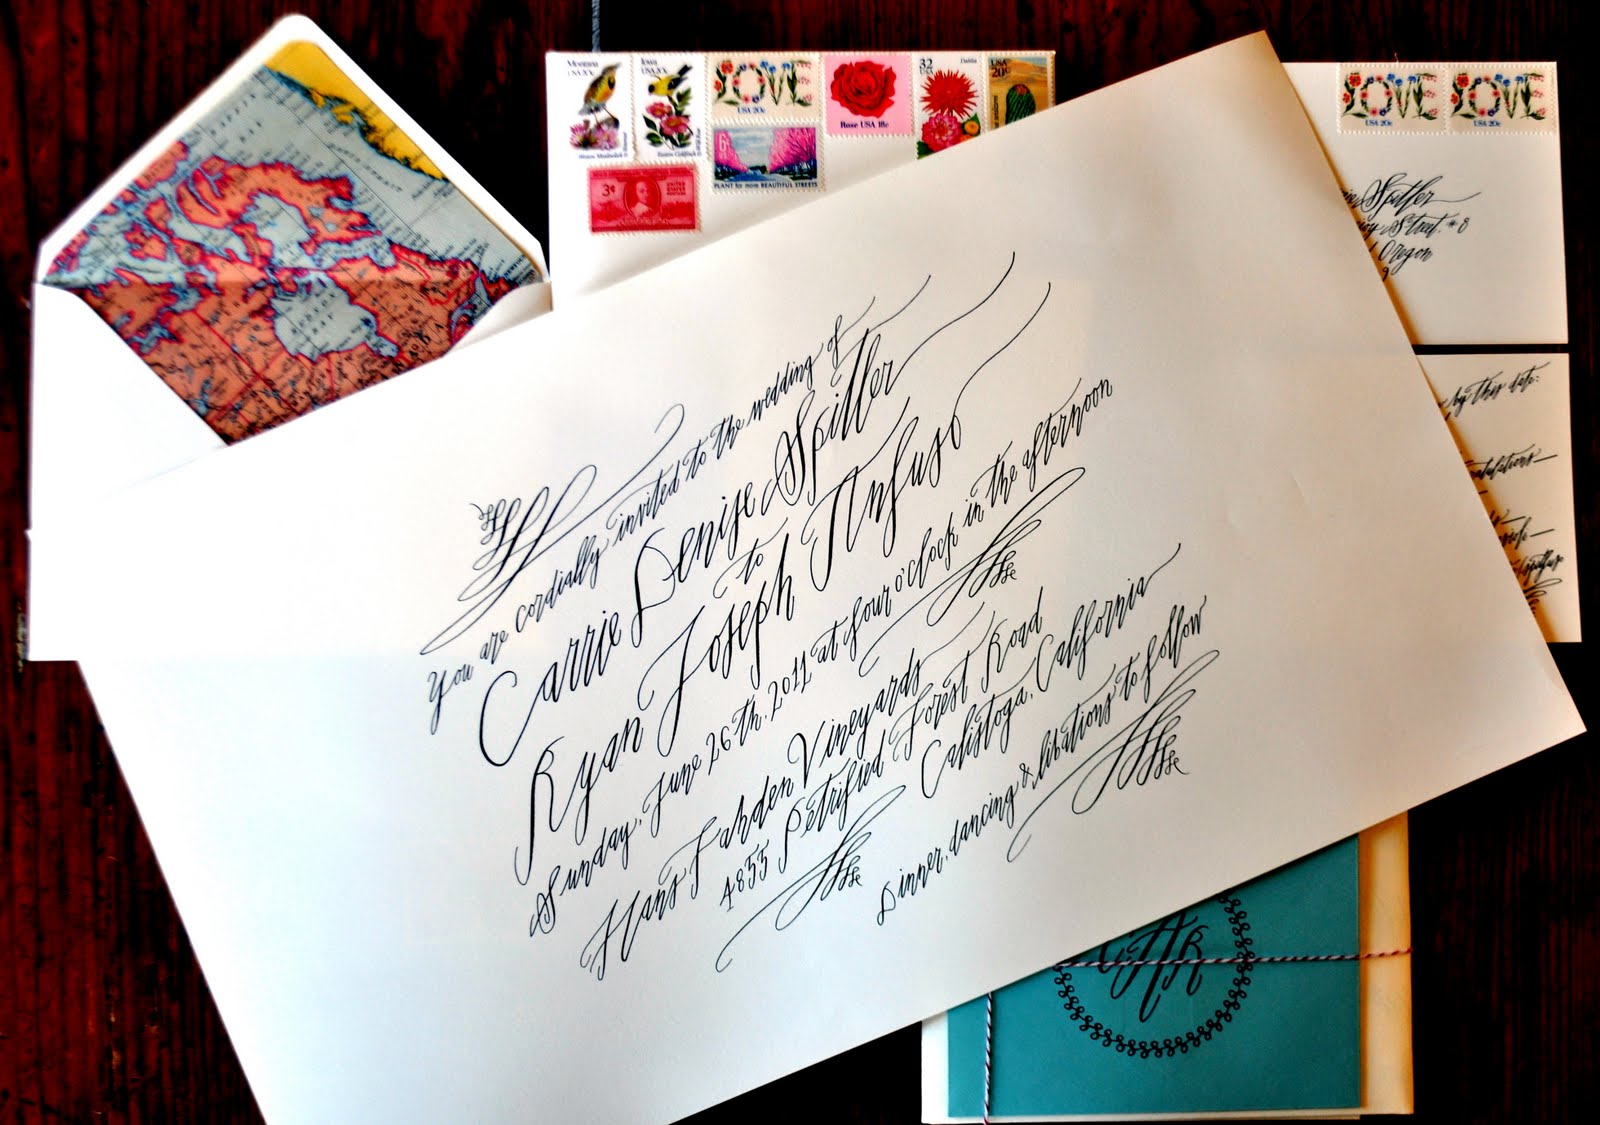 You are cordially invited to the wedding of
Carrie Denise Spiller
to
Ryan Joseph Anfuso
Sunday, June 26th, 2011 at four o'clock in the afternoon
Hans Fahden Vineyards
4855 Petrified Forest Road
Calistoga, California
Dinner, dancing & libations to follow
Montana
USA 20c
Iowa
USA 20c
LOVE
USA 20c
Rose USA 18c
32
USA
Dahlia
USA
20c
6c
PLANT for more BEAUTIFUL STREETS
3c
UNITED STATES POSTAGE
LOVE
USA 20c
LOVE
USA 20c
Spiller
Street, #8
Oregon
by this date:
CAR